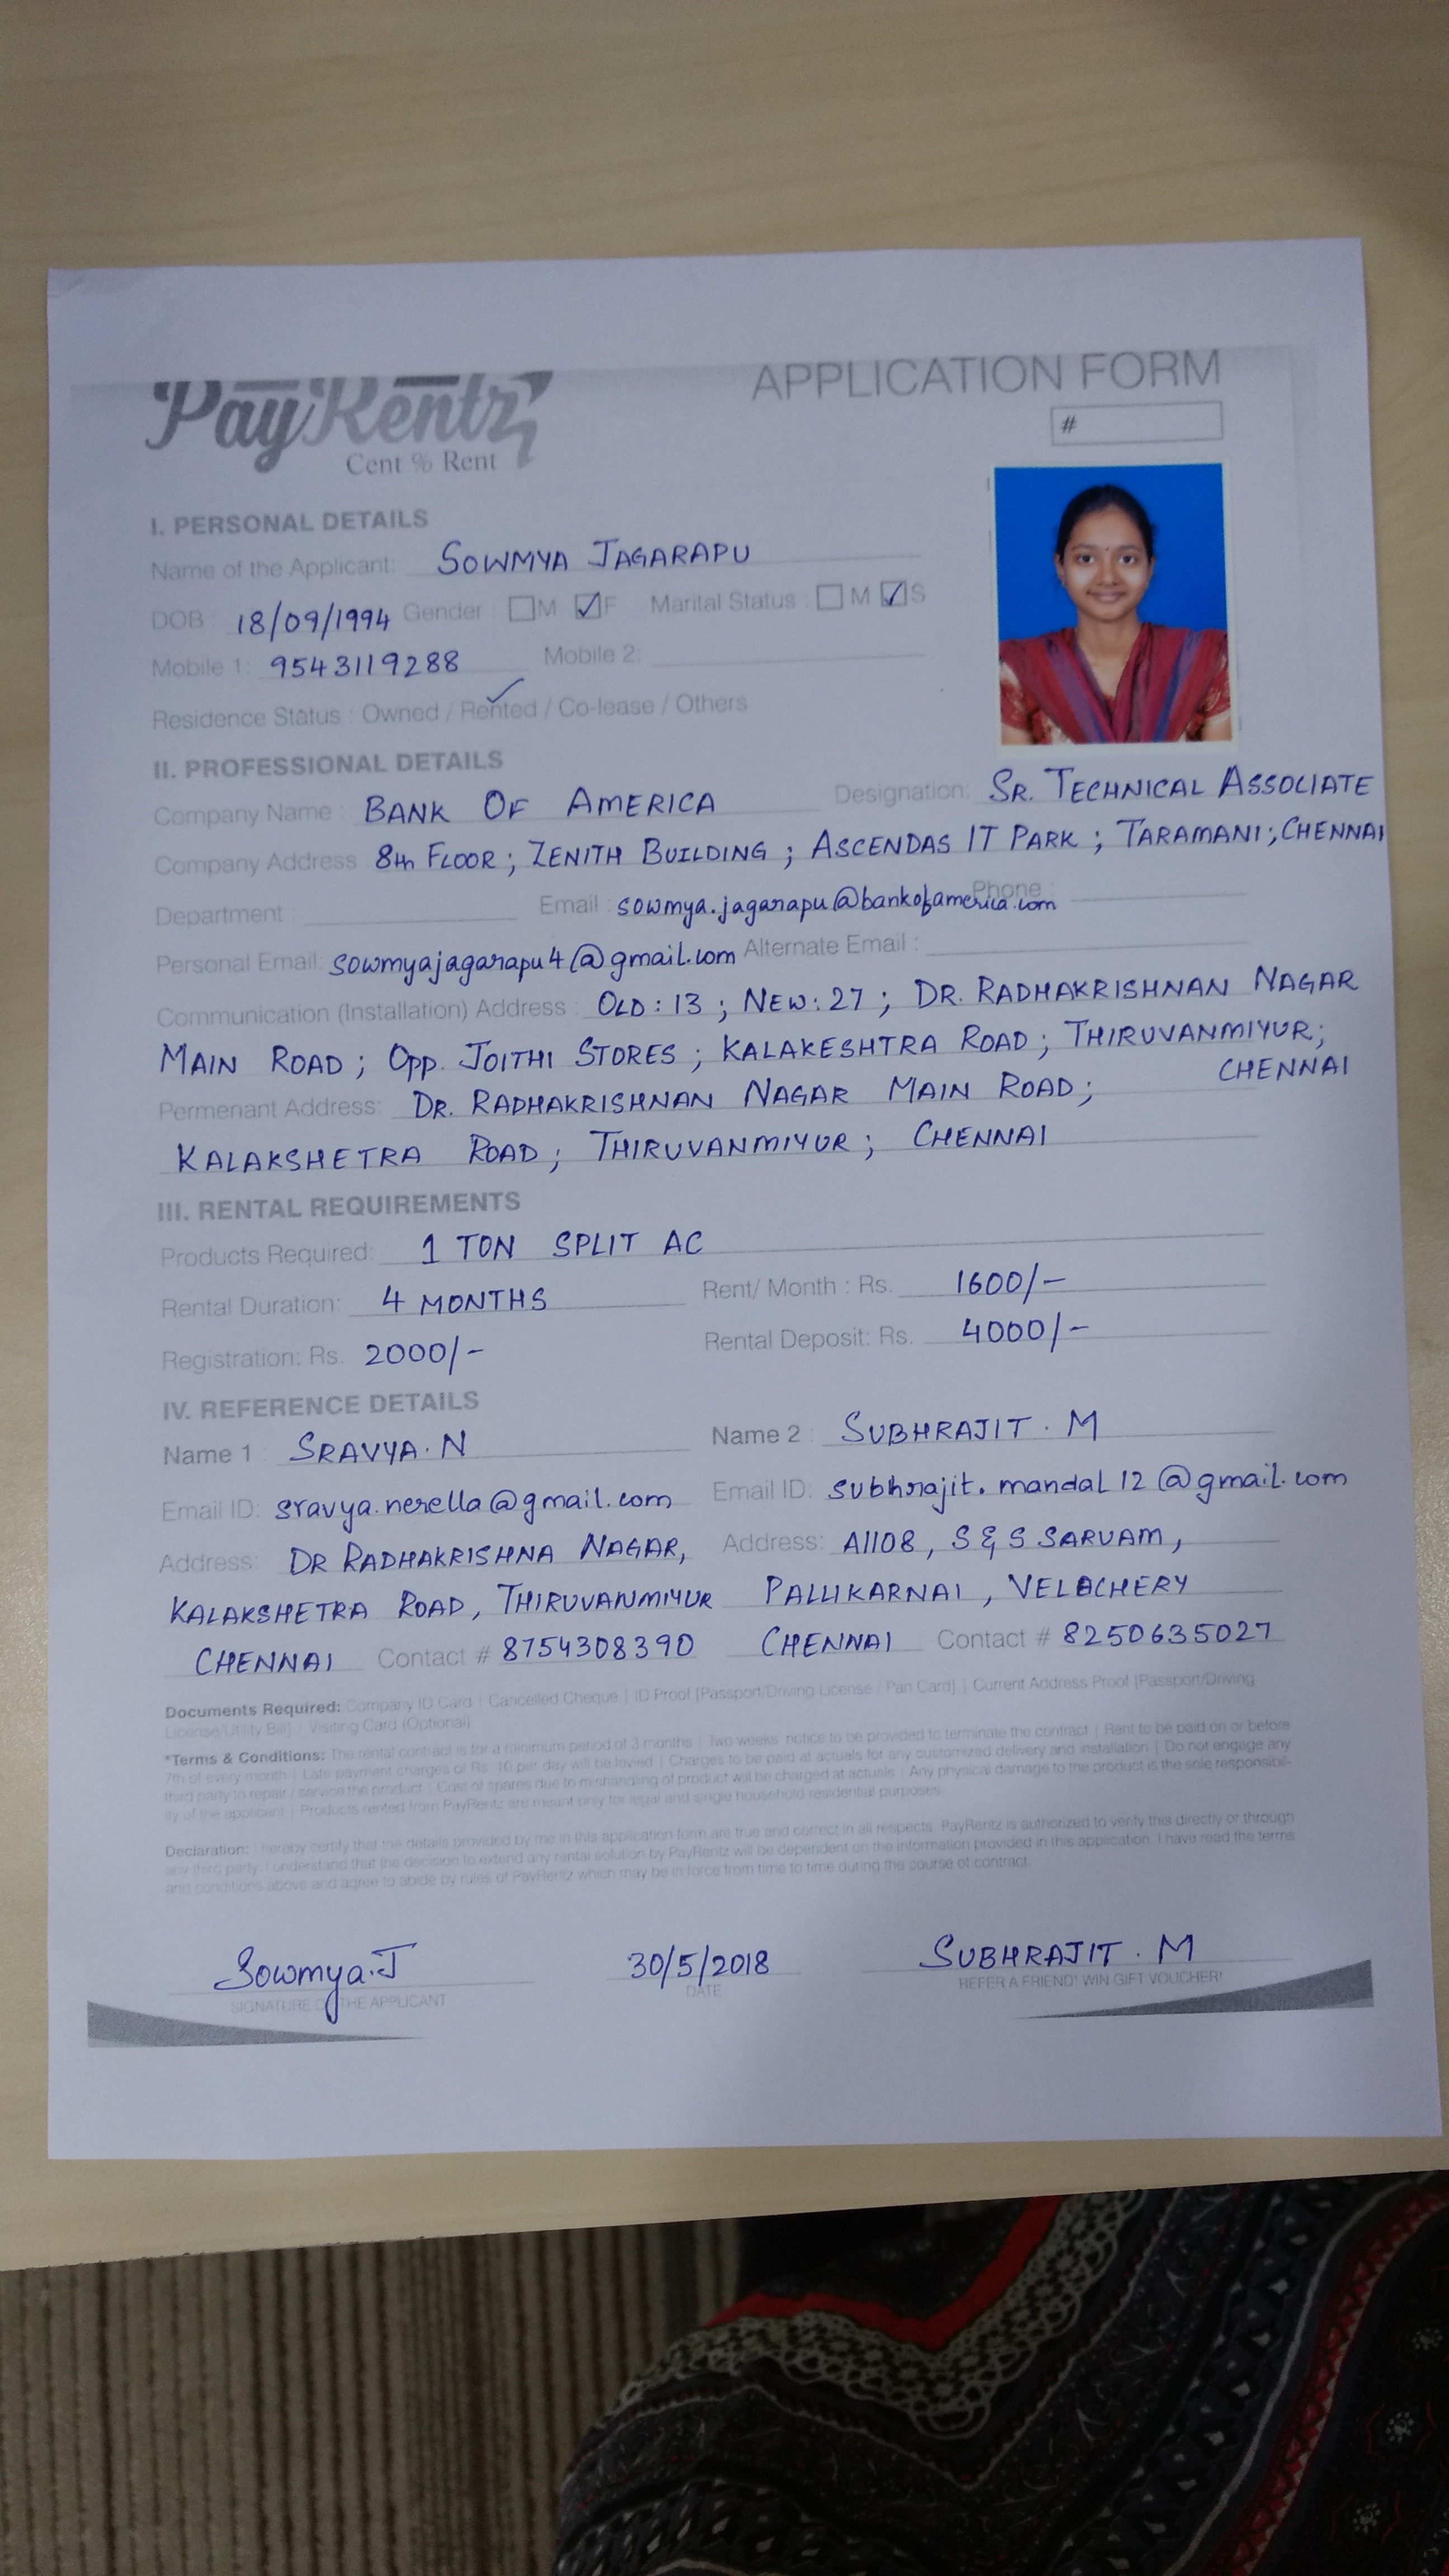 PayRentz
Cent % Rent
APPLICATION FORM
#
I. PERSONAL DETAILS
Name of the Applicant: SOWMYA JAGARAPU
DOB : 18/09/1994 Gender : M F Marital Status : M S
Mobile 1: 9543119288 Mobile 2:
Residence Status : Owned / Rented / Co-lease / Others
II. PROFESSIONAL DETAILS
Company Name : BANK OF AMERICA Designation: SR. TECHNICAL ASSOCIATE
Company Address 8th FLOOR ; ZENITH BUILDING ; ASCENDAS IT PARK ; TARAMANI ; CHENNAI
Department : Email : sowmya.jagarapu@bankofamerica.com Phone :
Personal Email: sowmyajagarapu4@gmail.com Alternate Email :
Communication (Installation) Address : OLD : 13 ; NEW : 27 ; DR. RADHAKRISHNAN NAGAR
MAIN ROAD ; Opp. JOITHI STORES ; KALAKESHTRA ROAD ; THIRUVANMIYUR;
CHENNAI
Permenant Address: DR. RADHAKRISHNAN NAGAR MAIN ROAD ;
KALAKSHETRA ROAD ; THIRUVANMIYUR ; CHENNAI
III. RENTAL REQUIREMENTS
Products Required: 1 TON SPLIT AC
Rental Duration: 4 MONTHS Rent/ Month : Rs. 1600/-
Registration: Rs. 2000/- Rental Deposit: Rs. 4000/-
IV. REFERENCE DETAILS
Name 1 : SRAVYA. N Name 2 : SUBHRAJIT . M
Email ID: sravya.nerella@gmail.com Email ID: subhrajit.mandal12@gmail.com
Address: DR RADHAKRISHNA NAGAR, Address: A1108, S & S SARVAM,
KALAKSHETRA ROAD, THIRUVANMIYUR PALLIKARNAI , VELACHERY
CHENNAI Contact # 8754308390 CHENNAI Contact # 8250635027
Documents Required: Company ID Card | Cancelled Cheque | ID Proof [Passport/Driving License / Pan Card] | Current Address Proof [Passport/Driving
License/Utility Bill] | Visiting Card (Optional)
*Terms & Conditions: The rental contract is for a minimum period of 3 months | Two weeks notice to be provided to terminate the contract | Rent to be paid on or before
7th of every month | Late payment charges of Rs. 10 per day will be levied | Charges to be paid at actuals for any customized delivery and installation | Do not engage any
third party to repair / service the product | Cost of spares due to mishandling of product will be charged at actuals | Any physical damage to the product is the sole responsibil-
ity of the applicant | Products rented from PayRentz are meant only for legal and single household residential purposes.
Declaration: I hereby certify that the details provided by me in this application form are true and correct in all respects. PayRentz is authorized to verify this directly or through
any third party. I understand that the decision to extend any rental solution by PayRentz will be dependent on the information provided in this application. I have read the terms
and conditions above and agree to abide by rules of PayRentz which may be in force from time to time during the course of contract.
Sowmya.J 30/5/2018 SUBHRAJIT . M
SIGNATURE OF THE APPLICANT DATE REFER A FRIEND! WIN GIFT VOUCHER!